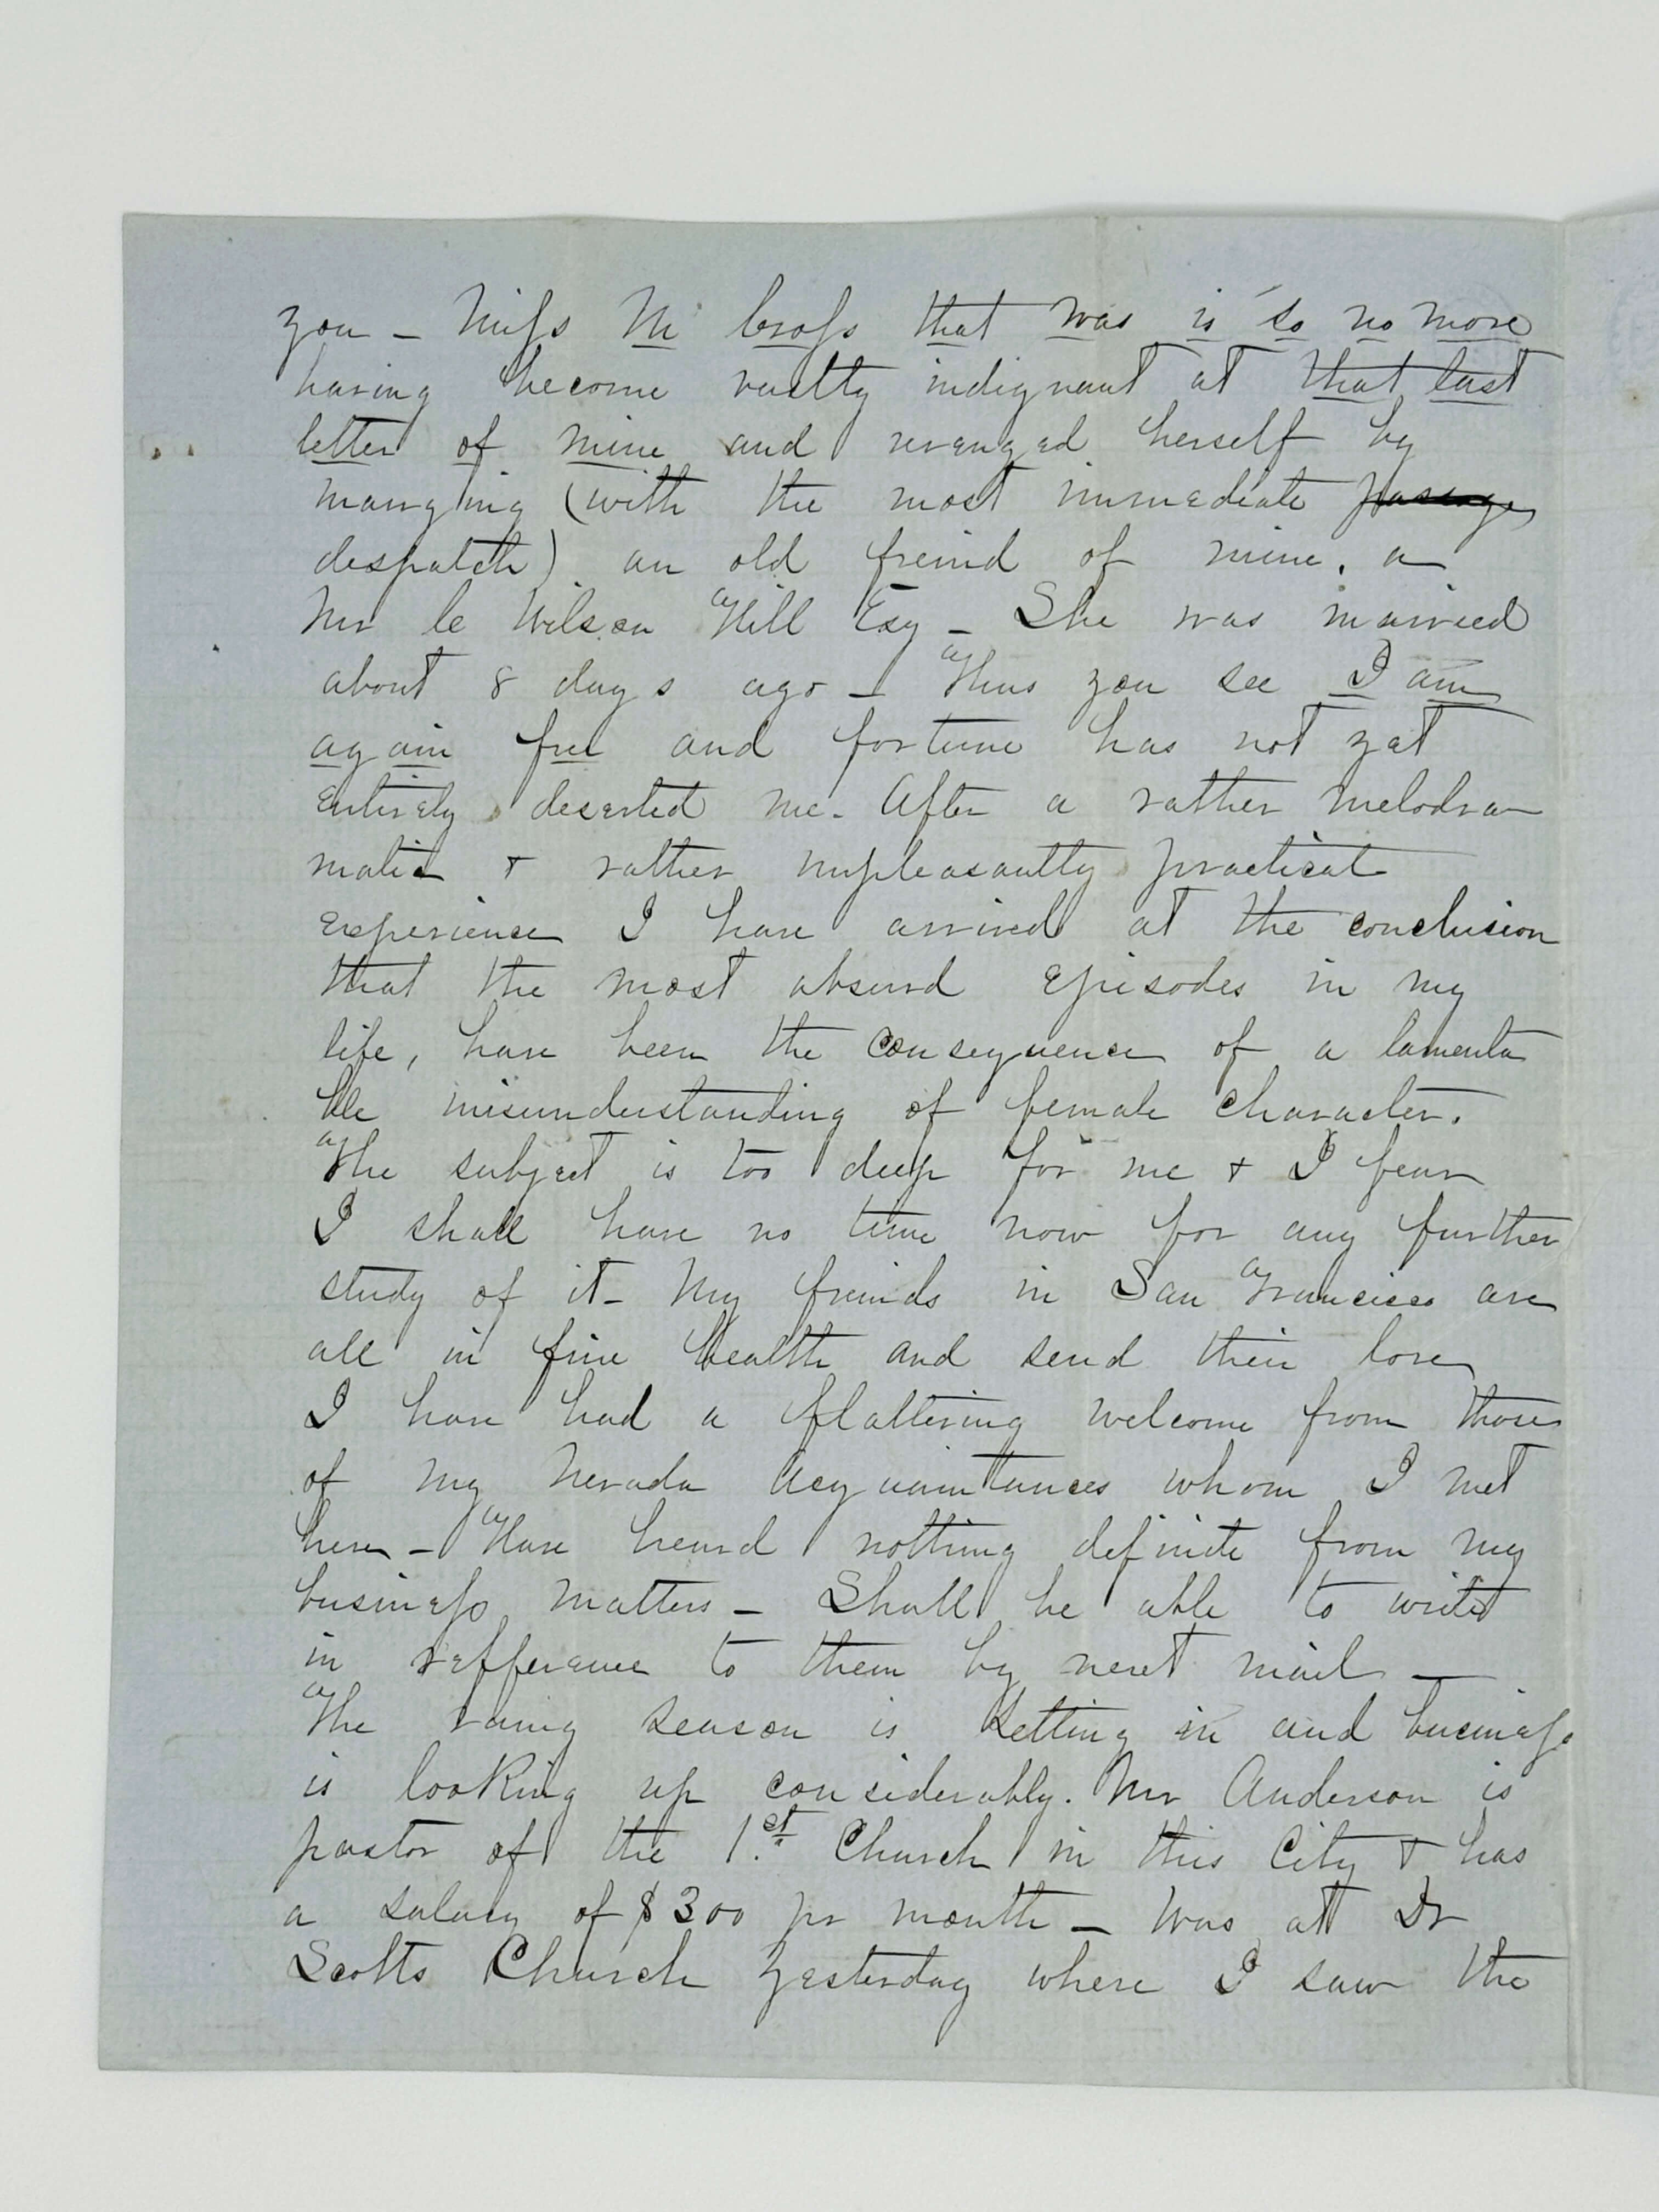 you — Miss M Cross that was is so no more
having become vastly indignant at that last
letter of mine and revenged herself by
marrying (with the most immediate passage
despatch) an old freind of mine, a
Mr C Wilson Hill Esq — She was married
about 8 days ago — Thus you see I am
again free and fortune has not yet
entirely deserted me. After a rather melodra
matic & rather unpleasantly practical
experience I have arrived at the conclusion
that the most absurd episodes in my
life, have been the consequence of a lamenta
ble misunderstanding of female character.
The subject is too deep for me & I fear
I shall have no time now for any further
study of it — My freinds in San Francisco are
all in fine health and send their love
I have had a flattering welcome from those
of my Nevada acquaintances whom I met
here — Have heard nothing definite from my
business matters — Shall be able to write
in refferance to them by next mail —
The rainy season is setting in and business
is looking up considerably. Mr Anderson is
pastor of the 1st Church in this City & has
a salary of $300 pr month — Was at Dr
Scotts Church yesterday where I saw the